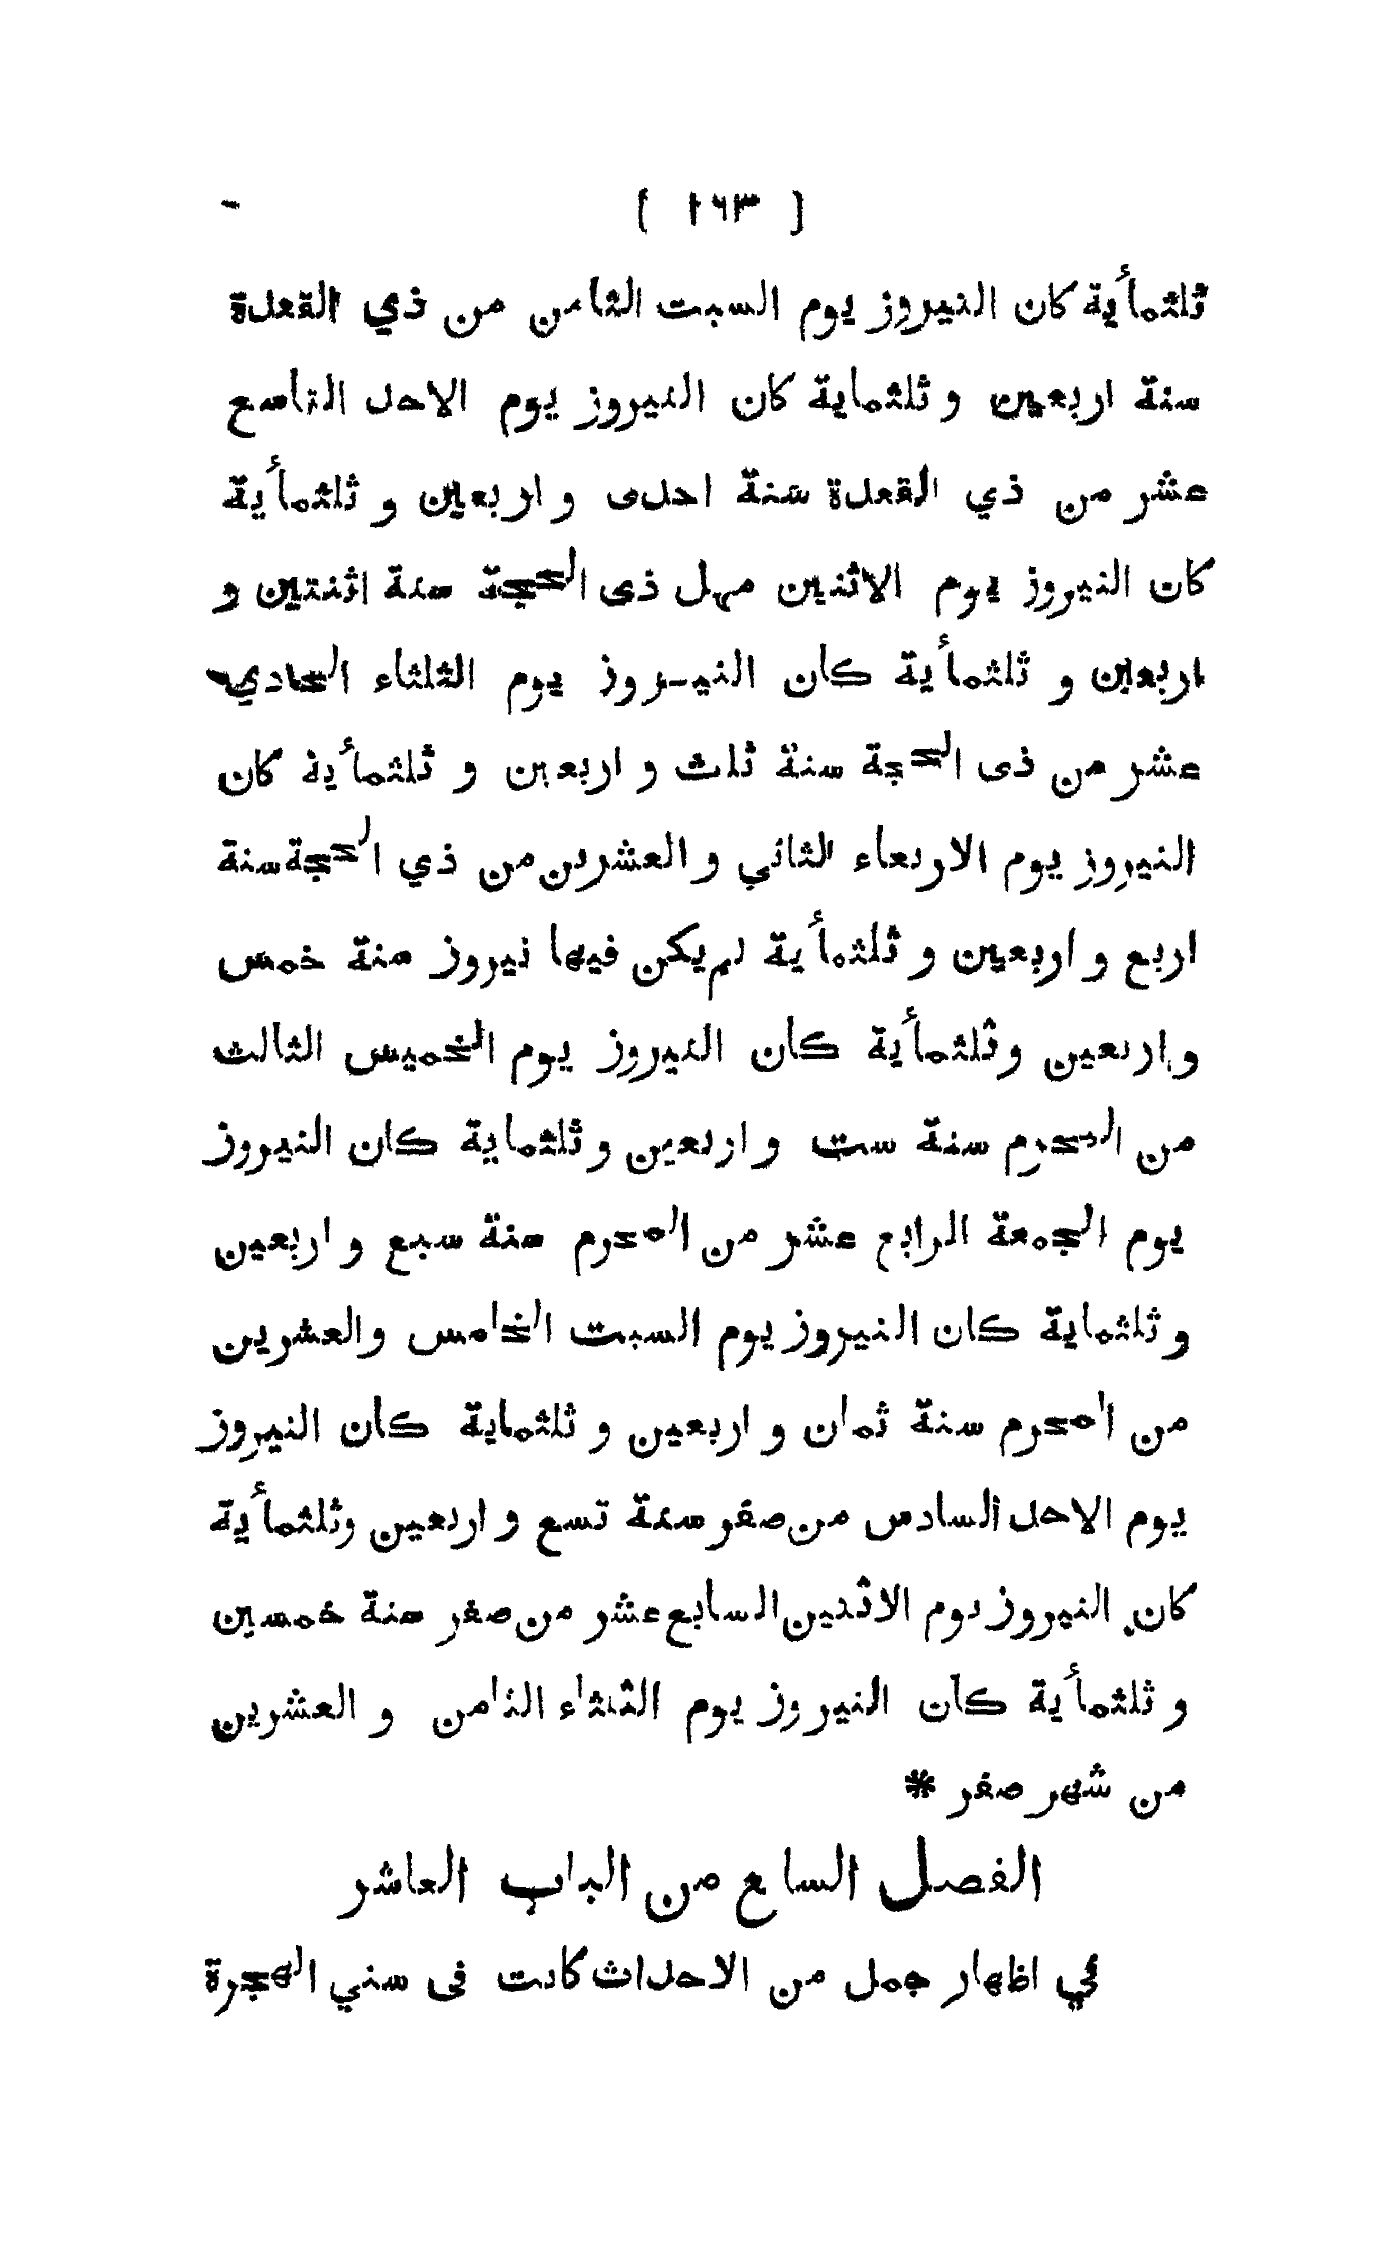 [ ١٦٣ ]
ثلثمأية كان النيروز يوم السبت الثامن من ذي القعدة
سنة اربعين و ثلثماية كان النيروز يوم الاحد التاسع
عشر من ذي القعدة سنة احدى و اربعين و ثلثمأية
كان النيروز يوم الاثنين مهل ذى الحجة سنة اثنتين و
اربعين و ثلثمأية كان النيـروز يوم الثلثاء الحادي
عشر من ذى الحجة سنة ثلث و اربعين و ثلثمأية كان
النيروز يوم الاربعاء الثاني و العشرين من ذي الحجة سنة
اربع و اربعين و ثلثمأية لم يكن فيها نيروز سنة خمس
و اربعين و ثلثمأية كان النيروز يوم الخميس الثالث
من المحرم سنة ست و اربعين و ثلثماية كان النيروز
يوم الجمعة الرابع عشر من المحرم سنة سبع و اربعين
و ثلثماية كان النيروز يوم السبت الخامس والعشرين
من المحرم سنة ثمان و اربعين و ثلثماية كان النيروز
يوم الاحد السادس من صفر سنة تسع و اربعين وثلثمأية
كان النيروز يوم الاثنين السابع عشر من صفر سنة خمسين
و ثلثمأية كان النيروز يوم الثلثاء الثامن و العشرين
من شهر صفر *
الفصل السابع من الباب العاشر
في اظهار جمل من الاحداث كانت فى سني الهجرة